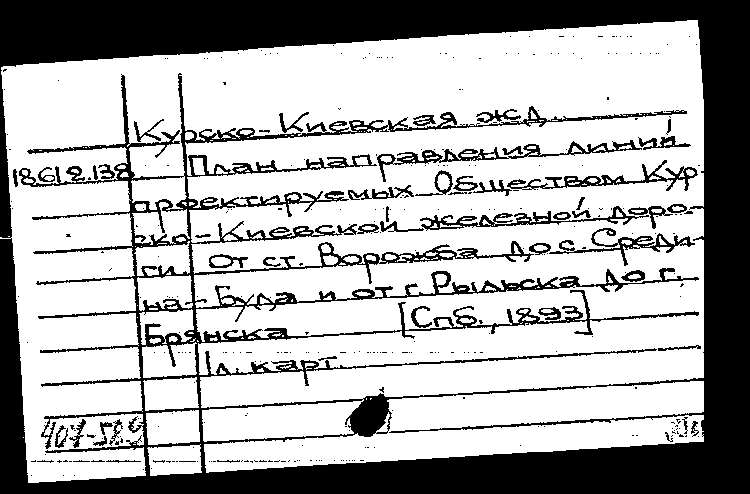 Курско-Киевская жд.
18612.138. План направления линий
проектируемых Обществом Кур-
ско-Киевской железной доро-
ги. От ст. Ворожба до с. Среди-
на-Буда и от г. Рыльска до г.
Брянска. [Спб., 1893]
1 л. карт.
407-589